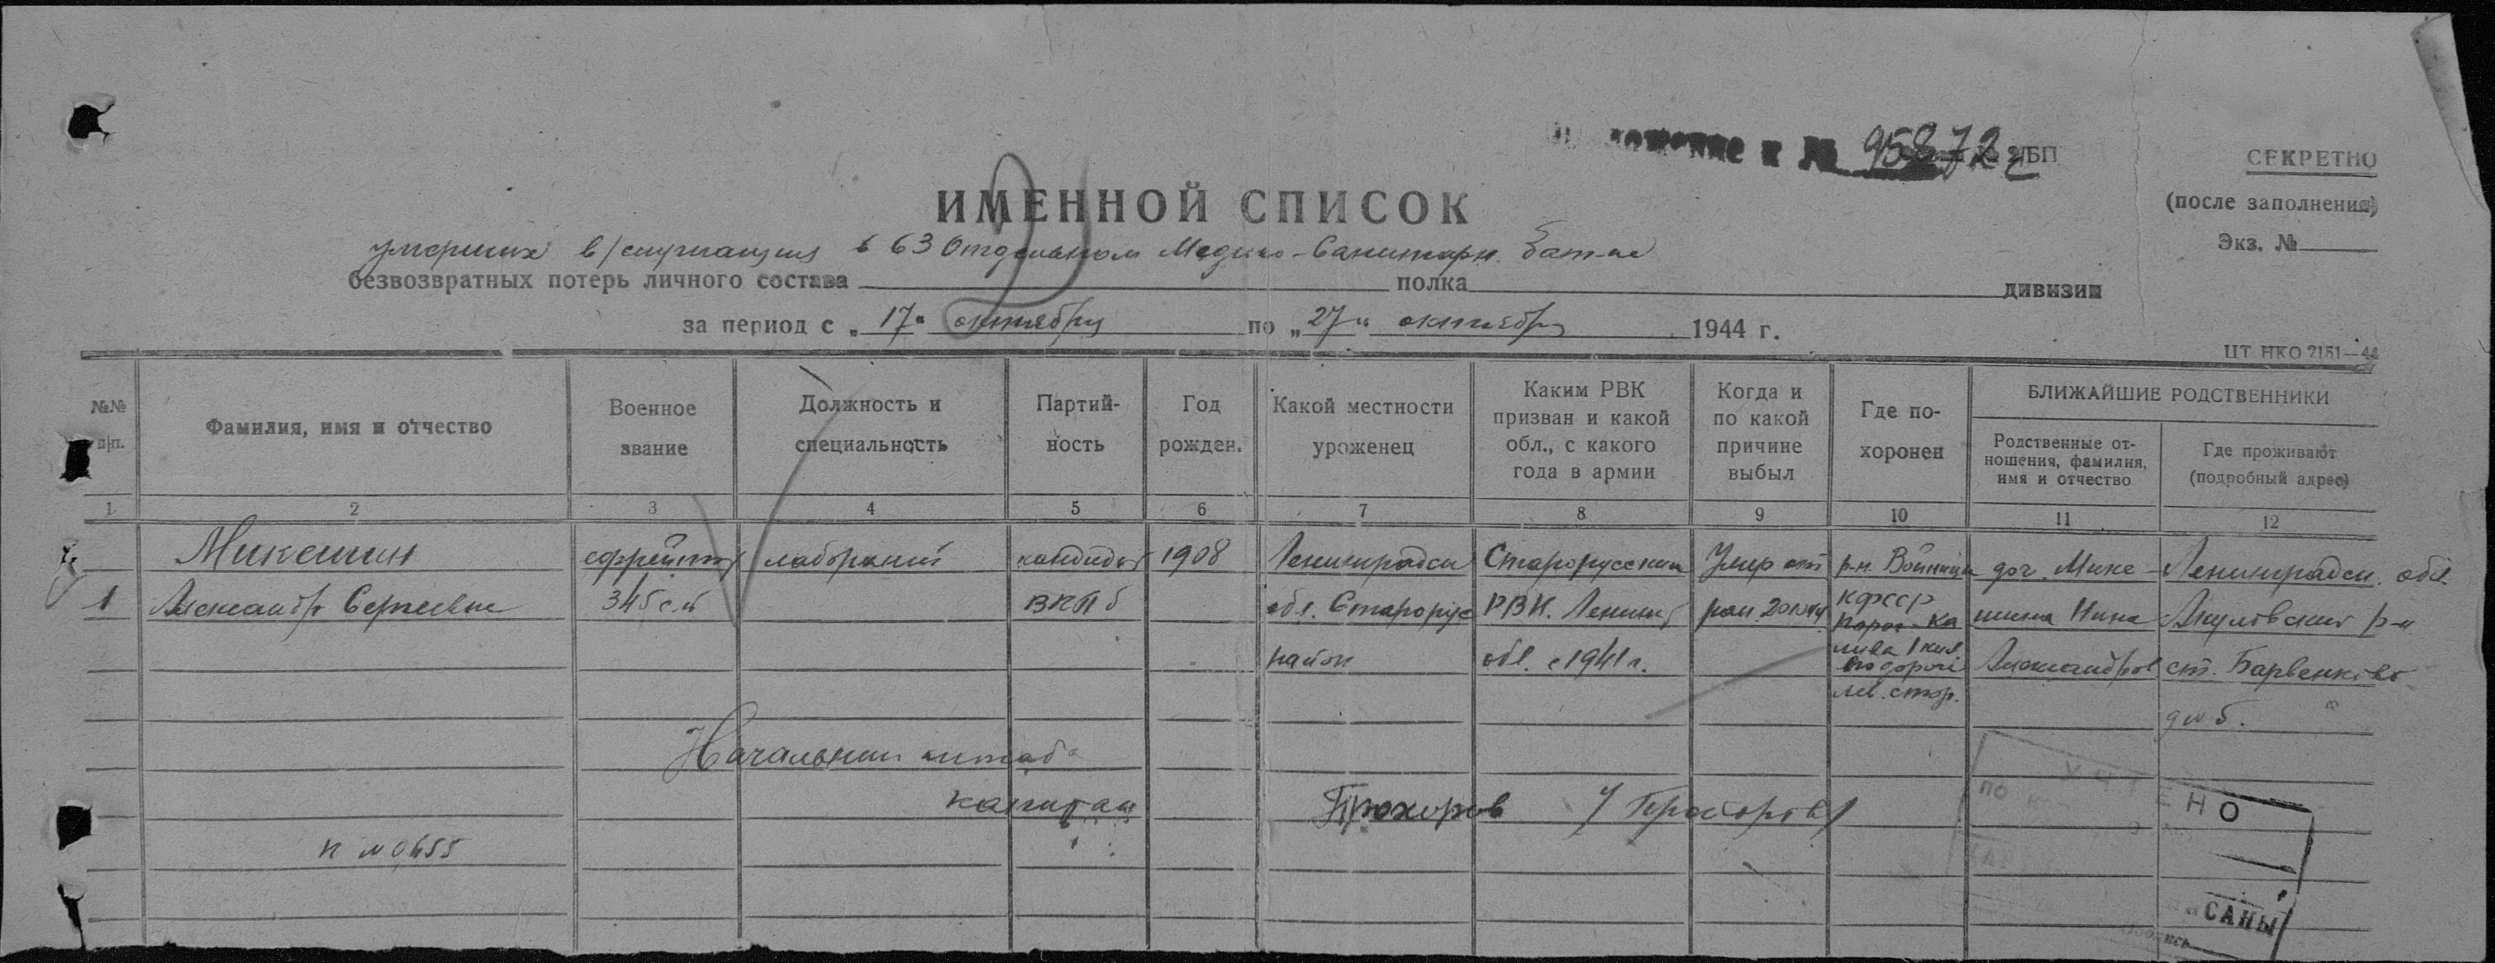 к № 95872с
СЕКРЕТНО
(после заполнения)
Экз. №
ИМЕННОЙ СПИСОК
умерших в/служащих в 63 Отдельном Медико-Санитарн. бат-не
безвозвратных потерь личного состава полка дивизии
за период с „17“ октября по „27“ октября 1944 г.
ЦТ НКО 2151—44
№№ п/п.
Фамилия, имя и отчество
Военное звание
Должность и специальность
Партий-
ность
Год рожден.
Какой местности уроженец
Каким РВК
призван и какой
обл., с какого
года в армии
Когда и
по какой
причине
выбыл
Где по-
хоронен
БЛИЖАЙШИЕ РОДСТВЕННИКИ
Родственные от-
ношения, фамилия,
имя и отчество
Где проживают
(подробный адрес)
1 2 3 4 5 6 7 8 9 10 11 12
1
Микешин
Александр Сергеевич
ефрейтор
345 с.п
кандидат
ВКП б
1908
Ленинградск
обл. Старорус
район
Старорусским
РВК. Ленинг
обл. с 1941 г.
Умер от
ран
р-н.
КФССР
1 кил.
по дороге
лев. стор.
доч. Мике-
шина Нина
Александров
Ленинградск. обл.
р-н
ст. Барвенково
д № 5.
Начальник штаба
капитан
Прохоров /Прохоров/
УЧТЕНО
ПО
САНЫ